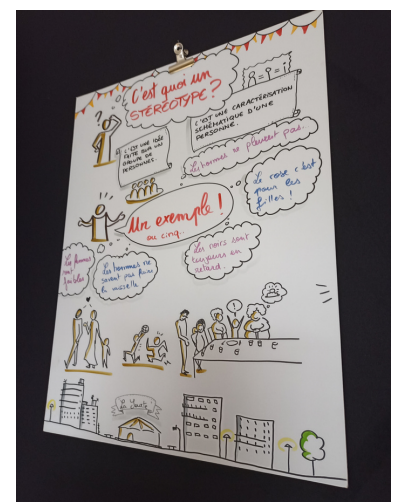 C'est quoi un
STÉRÉOTYPE?
C'EST UNE IDÉE
FAITE SUR UN
GROUPE DE
PERSONNES.
C'EST UNE CARACTÉRISATION
SCHÉMATIQUE D'UNE
PERSONNE.
Les hommes ne pleurent pas.
Le rose c'est
pour les
filles !
Un exemple !
ou cinq..
Les femmes
sont
faibles
Les hommes ne
savent pas faire
la vaisselle
Les noirs sont
toujours en
retard